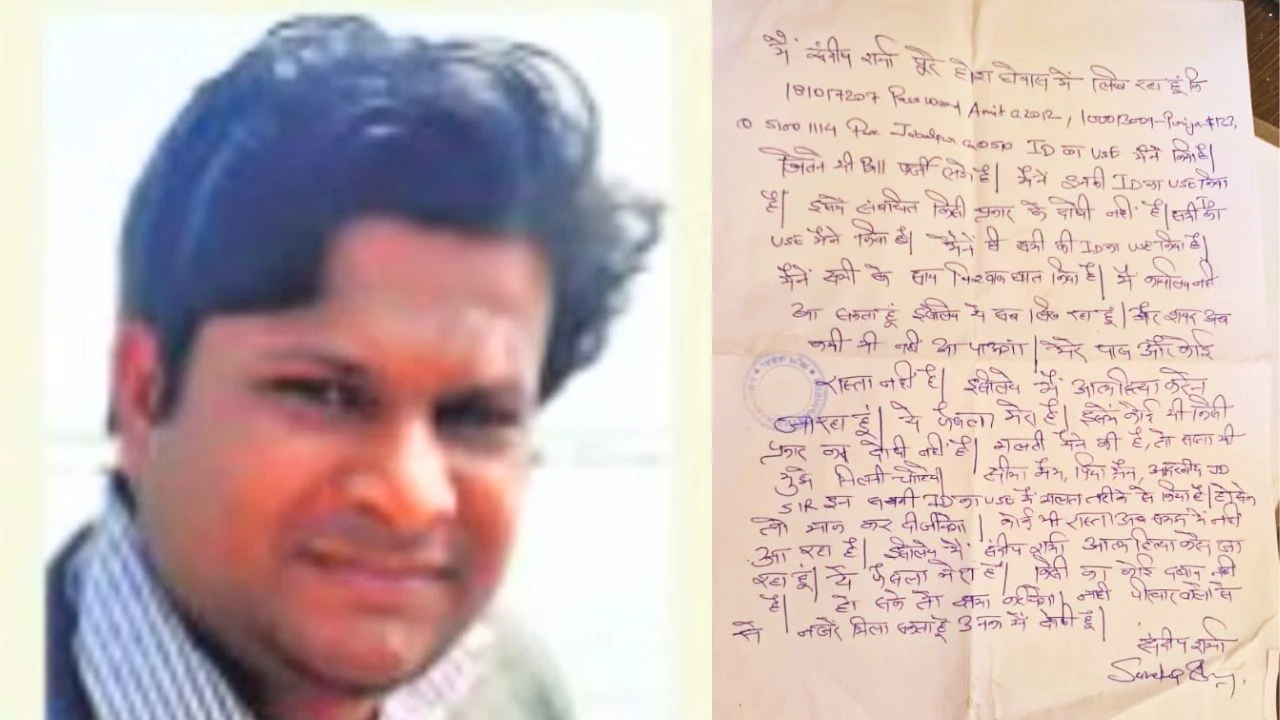 मैं संदीप शर्मा पूरे होश हवास में लिख रहा हूं कि
181017207 Password Amita2012,
51001114 ID का USE मैंने किया है|
जितने भी Bill फर्जी लगे है| मैंने इनकी ID का USE किया
है| इसमें संबंधित किसी प्रकार के दोषी नहीं है| सभी की ID
USE मैंने किया है| मैंने ही सभी की ID का USE किया है|
मैंने सभी के साथ किया है| मैं कार्यालय नहीं
आ सकता हूं इसलिये ये सब लिख रहा हूं| और शायद अब
कभी भी नहीं आ पाऊंगा| मेरे पास और कोई
रास्ता नहीं है| इसलिये मैं आत्महत्या करने
जा रहा हूं| ये फैसला मेरा है| इसमें कोई भी किसी
प्रकार का दोषी नहीं है| गलती मैंने की है, तो सजा भी
मुझे मिलनी चाहिये| सीमा मैम, प्रिया मैम, आदरणीय JD
SIR इन सबकी ID का USE मैं गलत तरीके से किया है| हो सके
तो माफ कर दीजियेगा| कोई भी रास्ता अब समझ में नहीं
आ रहा है| इसलिये मैं संदीप शर्मा आत्महत्या करने जा
रहा हूं| ये फैसला मेरा है| किसी का कोई दबाव नहीं
है| हो सके तो क्षमा करियेगा| नाही परिवार वालों से
नजरे मिला सकता हूं मैं दोषी हूं|
संदीप शर्मा